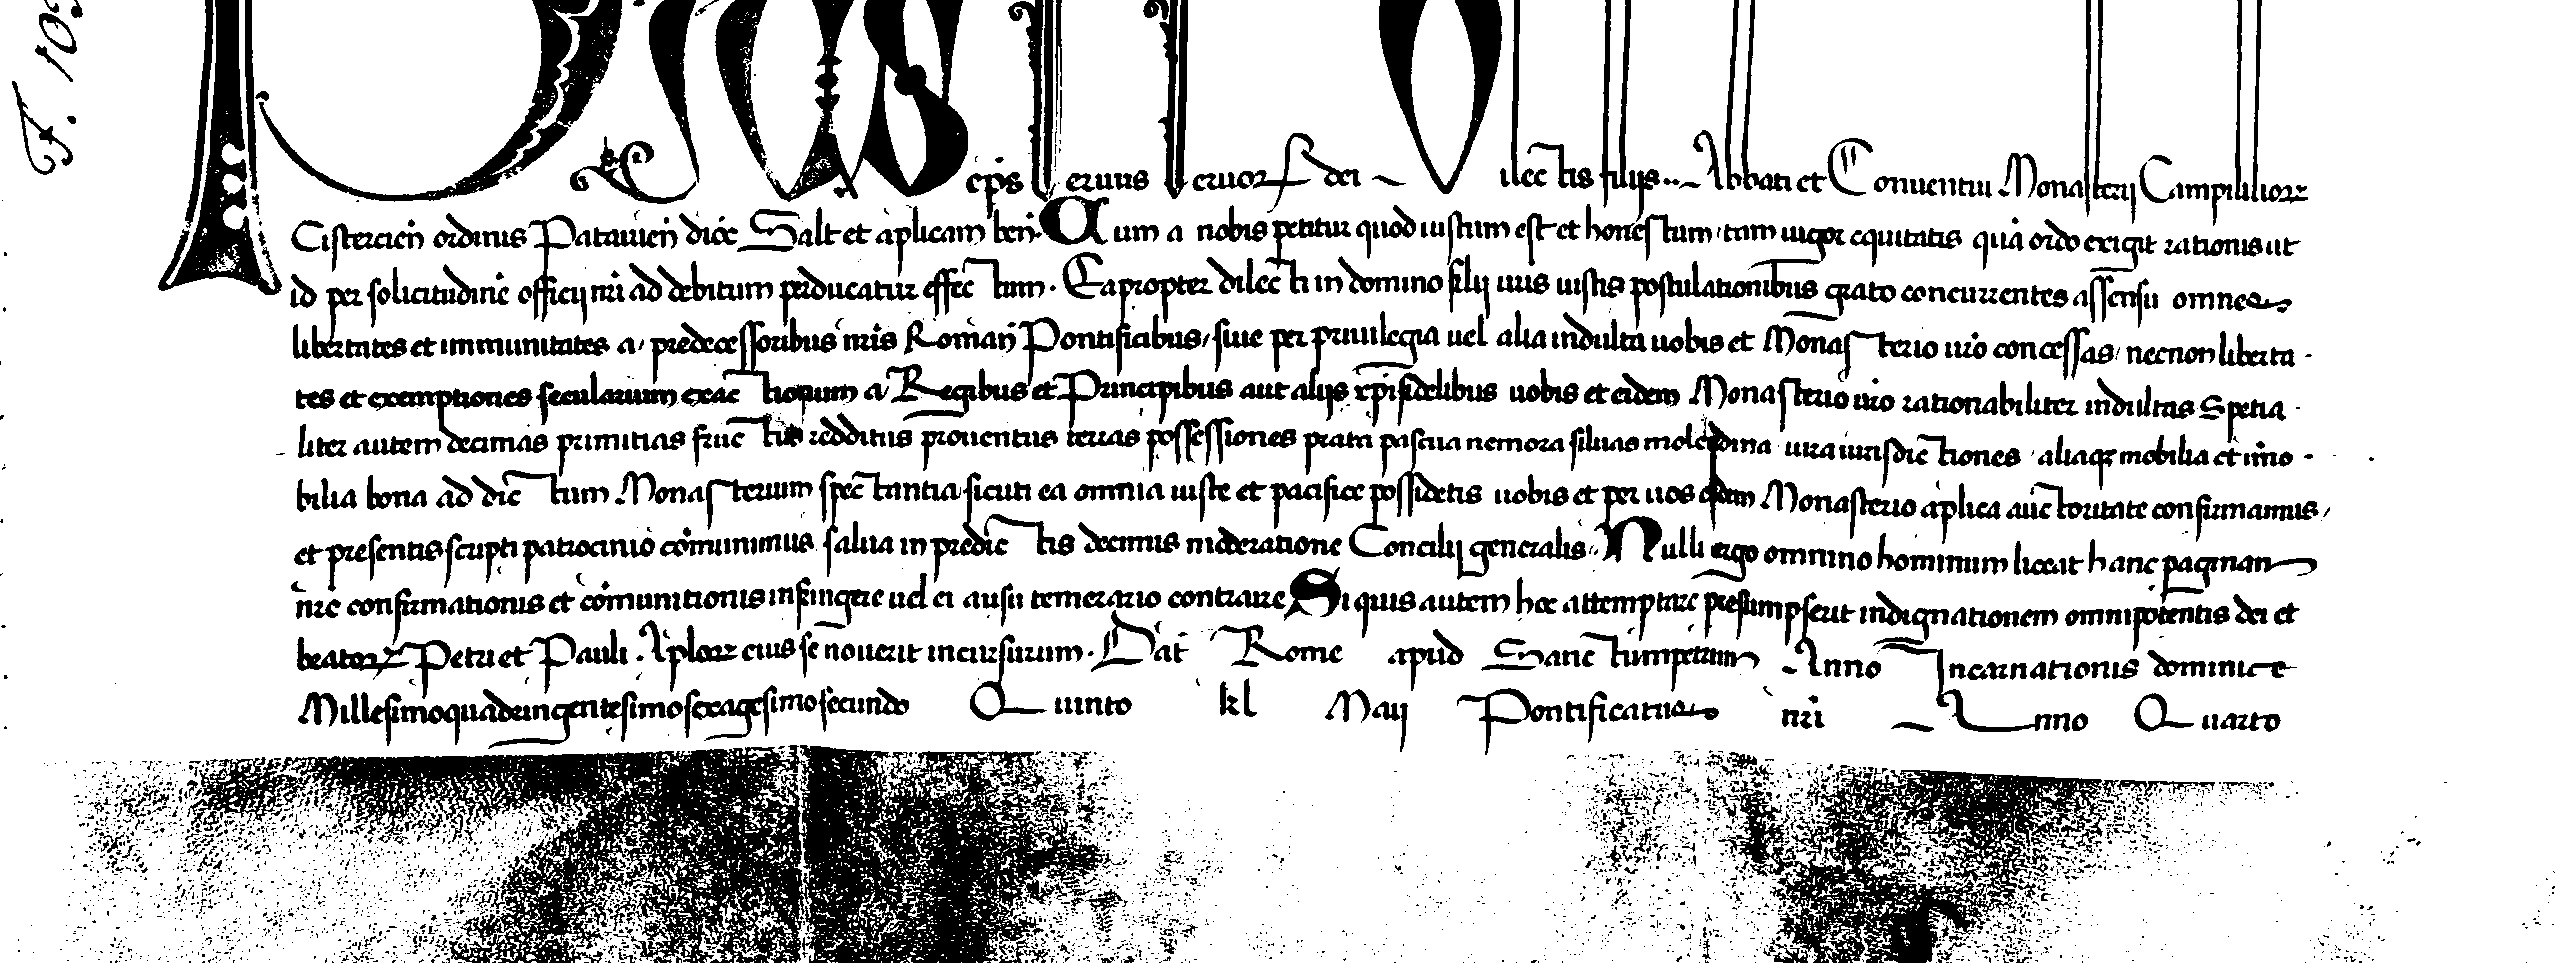 F. 103
Pius eps Seruus Seruor dei Dilectis filijs Abbati et Conuentui Monasterij Campililior
Cistercien ordinis Patauien dioc Salt et aplicam ben. Cum a nobis petitur quod iustum est et honestum, tam uigor equitatis quā ordo exigit rationis ut
id per solicitudinē officij nri ad debitum perducatur effectum. Eapropter dilecti in domino filij uris iustis postulationibus grato concurrentes assensu omnes
libertates et immunitates a, predecessoribus nris Romanis Pontificibus, siue per priuilegia uel alia indulta uobis et Monasterio uro concessas, necnon liberta
tes et exemptiones secularium exactionum a Regibus et Principibus aut alijs xpifidelibus uobis et eidem Monasterio uro rationabiliter indultas Spetia
liter autem decimas primitias fructus redditus prouentus terras possessiones prata pascua nemora siluas molendina iura iurisdictiones aliaqz mobilia et imo
bilia bona ad dictum Monasterium spectantia sicuti ea omnia iuste et pacifice possidetis uobis et per uos eidem Monasterio aplica auctoritate confirmamus,
et presentis scripti patrocinio cōmunimus salua in predictis decimis moderatione Concilij generalis. Nulli ergo omnino hominum liceat hanc paginam
nre confirmationis et cōmunitionis infringere uel ei ausu temerario contraire Si quis autem hoc attemptare presumpserit indignationem omnipotentis dei et
beator Petri et Pauli Aplor eius se nouerit incursurum. Dat Rome apud Sanctumpetrum Anno Incarnationis dominice
Millesimoquadringentesimosexagesimosecundo Quinto kl Maij Pontificatus nri Anno Quarto